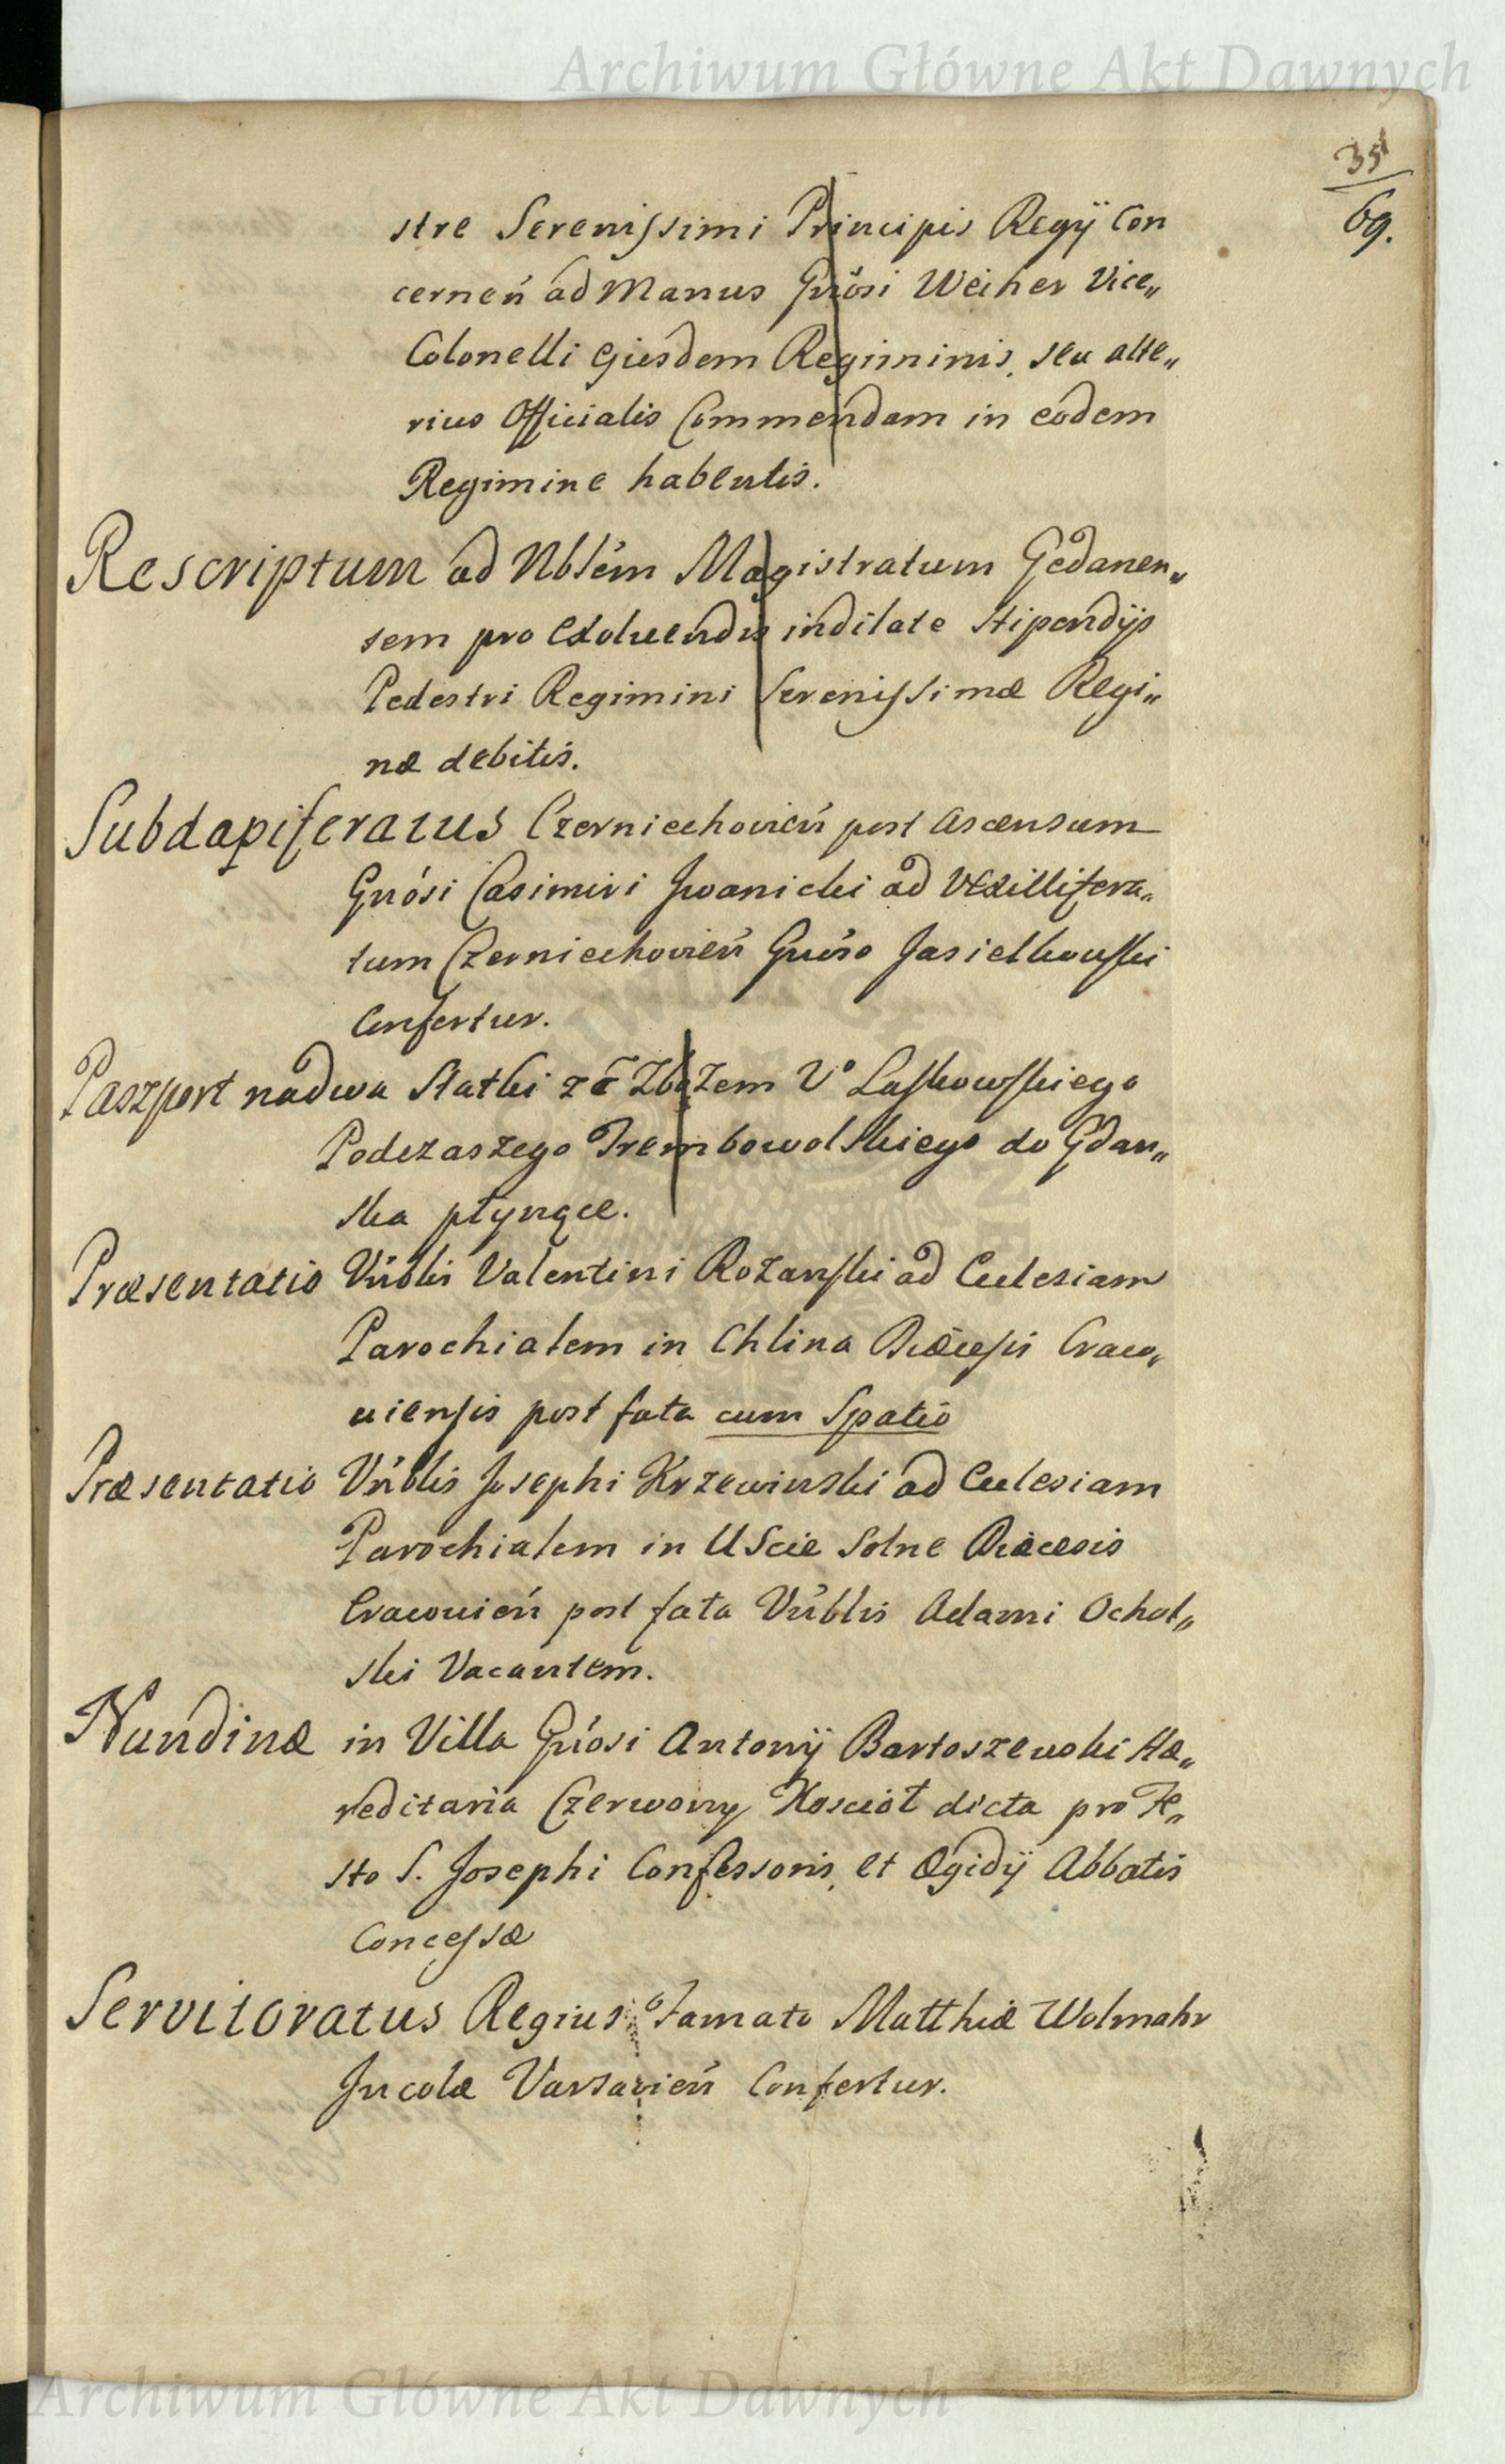 Archiwum Główne Akt Dawnych
35
69.
stre Serenissimi Principis Regÿ Con
cerneń ad Manus Gnõsi Weiher Vice„
Colonelli Ejusdem Regiminis, seu alte„
rius Officialis Commendam in eodem
Regimine habentis.
Rescriptum ad Nblem Magistratum Gedanen„
sem pro Exoluendis indilate Stipendÿs
Pedestri Regimini Serenissimæ Regi„
næ debitis.
Subdapiferatus Czerniechovień post Ascensum
Gnósi Casimiri Iwanicki ad Vexillifera„
tum Czerniechovień Gnóso Jasielkowski
Confertur.
Paszport nadwa Statki ze Zbożem Vº Laskowskiego
Podczaszego Trembowolskiego do Gdan„
ska płynące.
Præsentatio Vnblis Valentini Rozanski ad Ecclesiam
Parochialem in Chlina Diæcesis Craco„
uiensis post fata cum Spatio
Præsentatio Vnblis Josephi Krzewinski ad Ecclesiam
Parochialem in Uscie Solne Diæcesis
Cracouień post fata Vnblis Adami Ochot„
ski Vacantem.
Nundinæ in Villa Gnósi Antonÿ Bartoszewski Hæ„
reditaria Czerwony Kosciół dicta pro Fe„
sto S. Josephi Confessoris, et Ægidÿ Abbatis
Concessæ
Servitoratus Regius Famato Matthiæ Wolmahr
Incolæ Varsavień Confertur.
Archiwum Główne Akt Dawnych